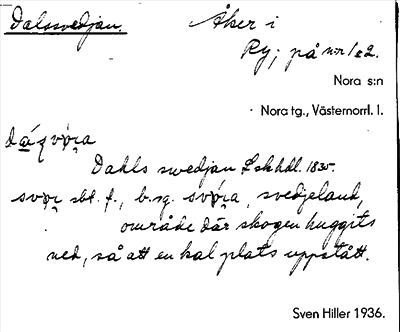 Dalssvedjan.
Åker i
Ry; på nr 1 & 2.
Nora s:n
Nora tg., Västernorrl. l.
Dahls swedjan L.skhdl. 1835.
svør sbt. f., b.sg. svøra, svedjeland,
område där skogen huggits
ned, så att en kal plats uppstått.
Sven Hiller 1936.